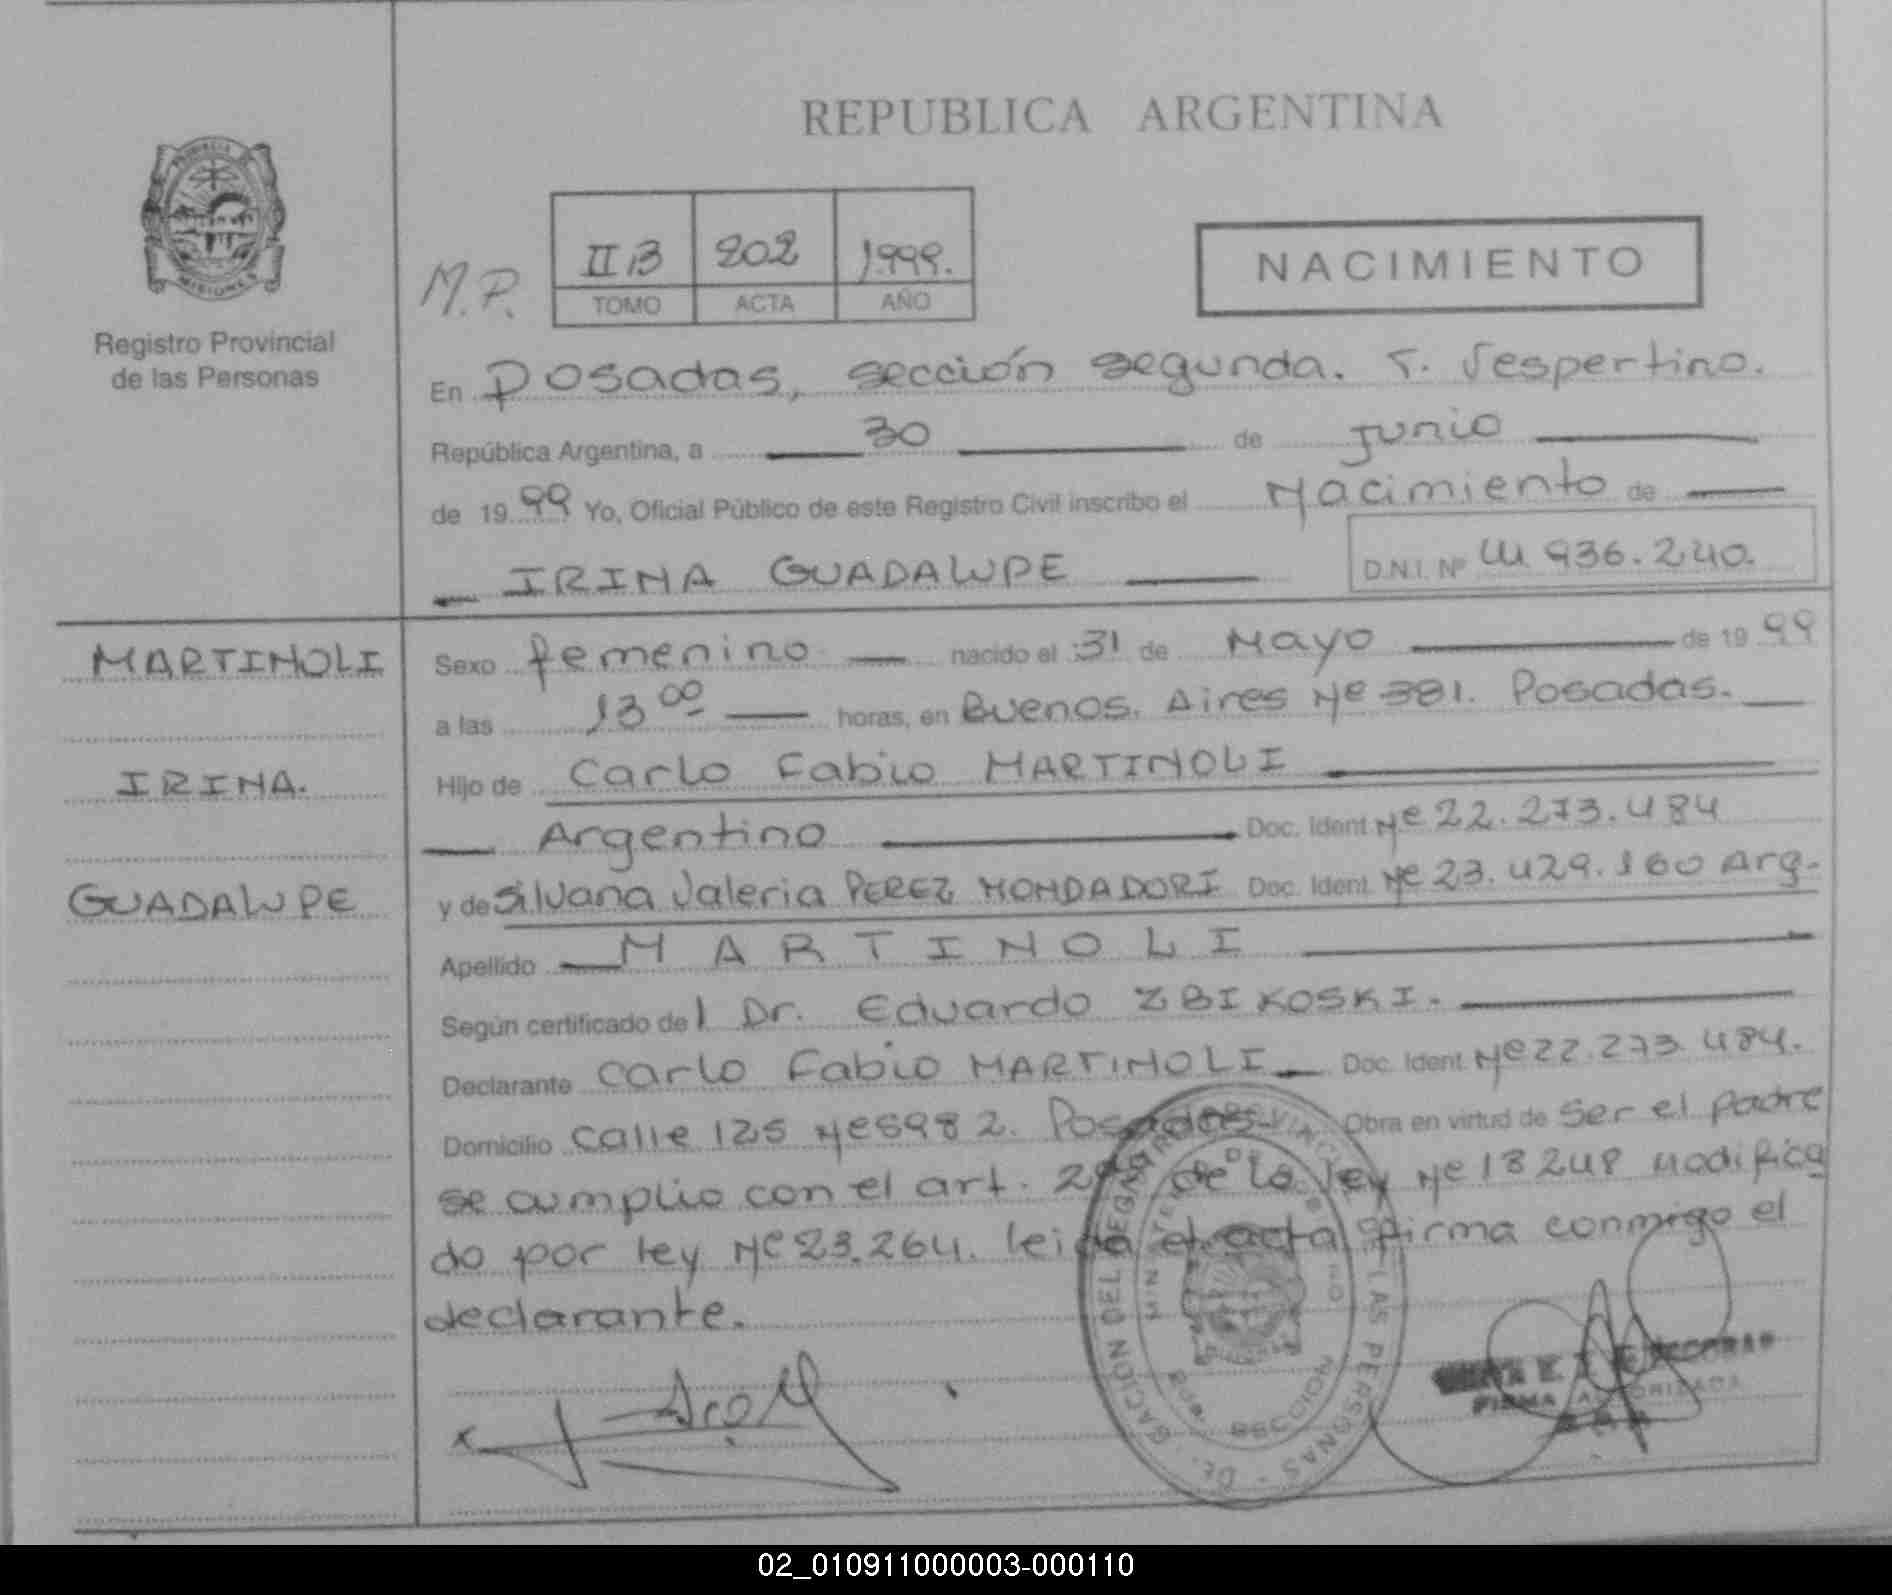 REPUBLICA ARGENTINA
PROVINCIA DE
MISIONES
Registro Provincial
de las Personas
M.P.
II B 202 1999.
TOMO ACTA AÑO
NACIMIENTO
En Posadas, sección segunda. T. Vespertino.
República Argentina, a 30 de Junio
de 1999 Yo, Oficial Público de este Registro Civil inscribo el Nacimiento de
IRINA GUADALUPE
D.N.I. Nº 41.936.240.
MARTINOLI
IRINA.
GUADALUPE
Sexo femenino nacido el 31 de Mayo de 1999
a las 13 00 horas, en Buenos. Aires Nº 381. Posadas.
Hijo de Carlo Fabio MARTINOLI
Argentino Doc. Ident Nº 22.273.484
y de Silvana Valeria PEREZ MONDADORI Doc. Ident. Nº 23.429.160 Arg.
Apellido MARTINOLI
Según certificado del Dr. Eduardo ZBIKOSKI.
Declarante Carlo Fabio MARTINOLI Doc. Ident. Nº 22.273.484.
Domicilio Calle 125 Nº 5982. Posadas Obra en virtud de ser el padre
se cumplio con el art. de la ley Nº 18248 modifica
do por ley Nº 23.264. leida el acta firma conmigo el
declarante.
FIRMA AUTORIZADA
02_010911000003-000110